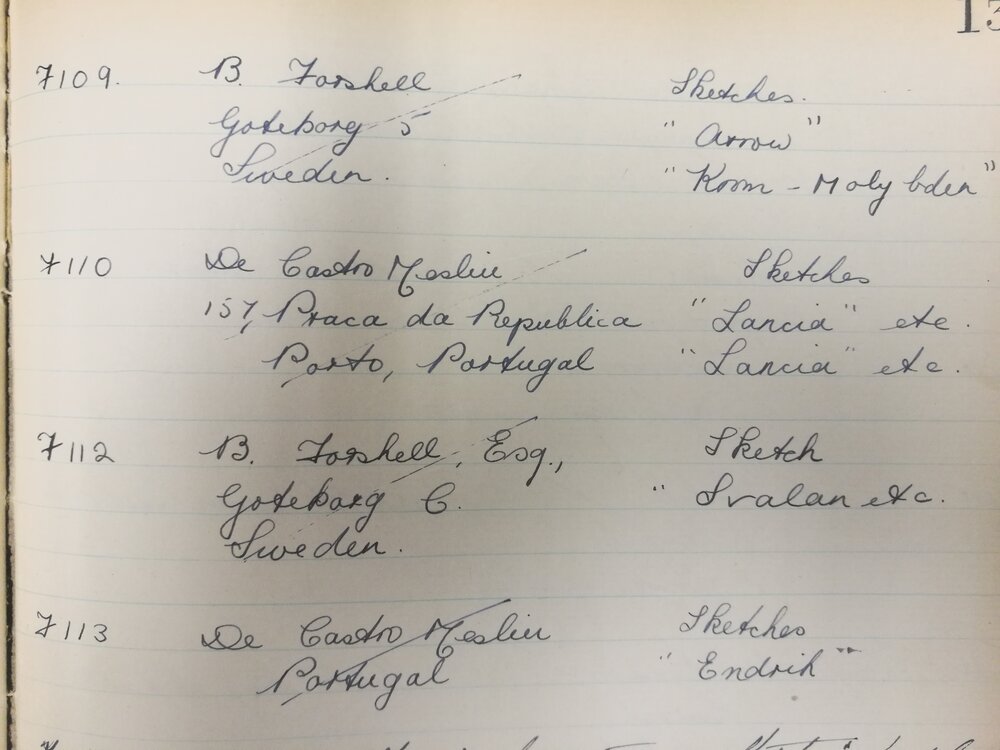 13
7109. B. Forshell Sketches.
Goteborg 5 " Arrow "
Sweden. " Krom - Molybden "
7110 De Castro Meslin Sketches
157, Praca da Republica " Lancia " etc.
Porto, Portugal " Lancia " etc.
7112 B. Forshell, Esq., Sketch
Goteborg C. " Svalan etc.
Sweden.
7113 De Castro Meslin Sketches
Portugal " Endrik "